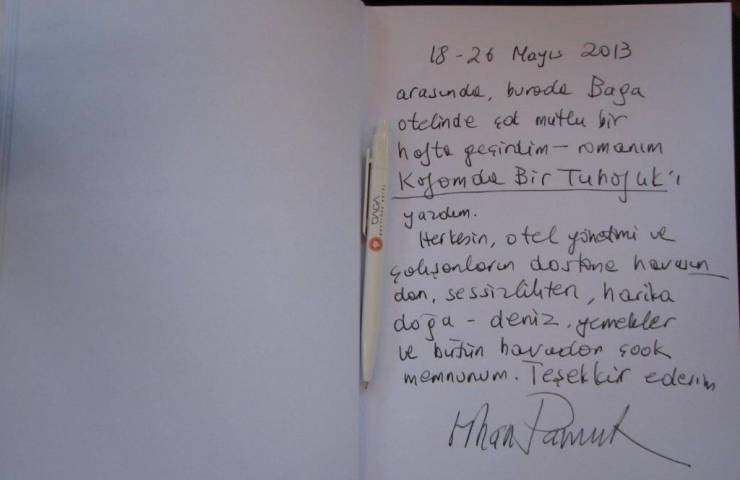 18-26 Mayıs 2013
arasında, burada Baga
otelinde çok mutlu bir
hafta geçirdim - romanım
Kafamda Bir Tuhaflık'ı
yazdım.
Herkesin, otel yönetimi ve
çalışanların dostane havasın
dan, sessizlikten, harika
doğa - deniz, yemekler
ve bütün havadan çook
memnunum. Teşekkür ederim
Orhan Pamuk